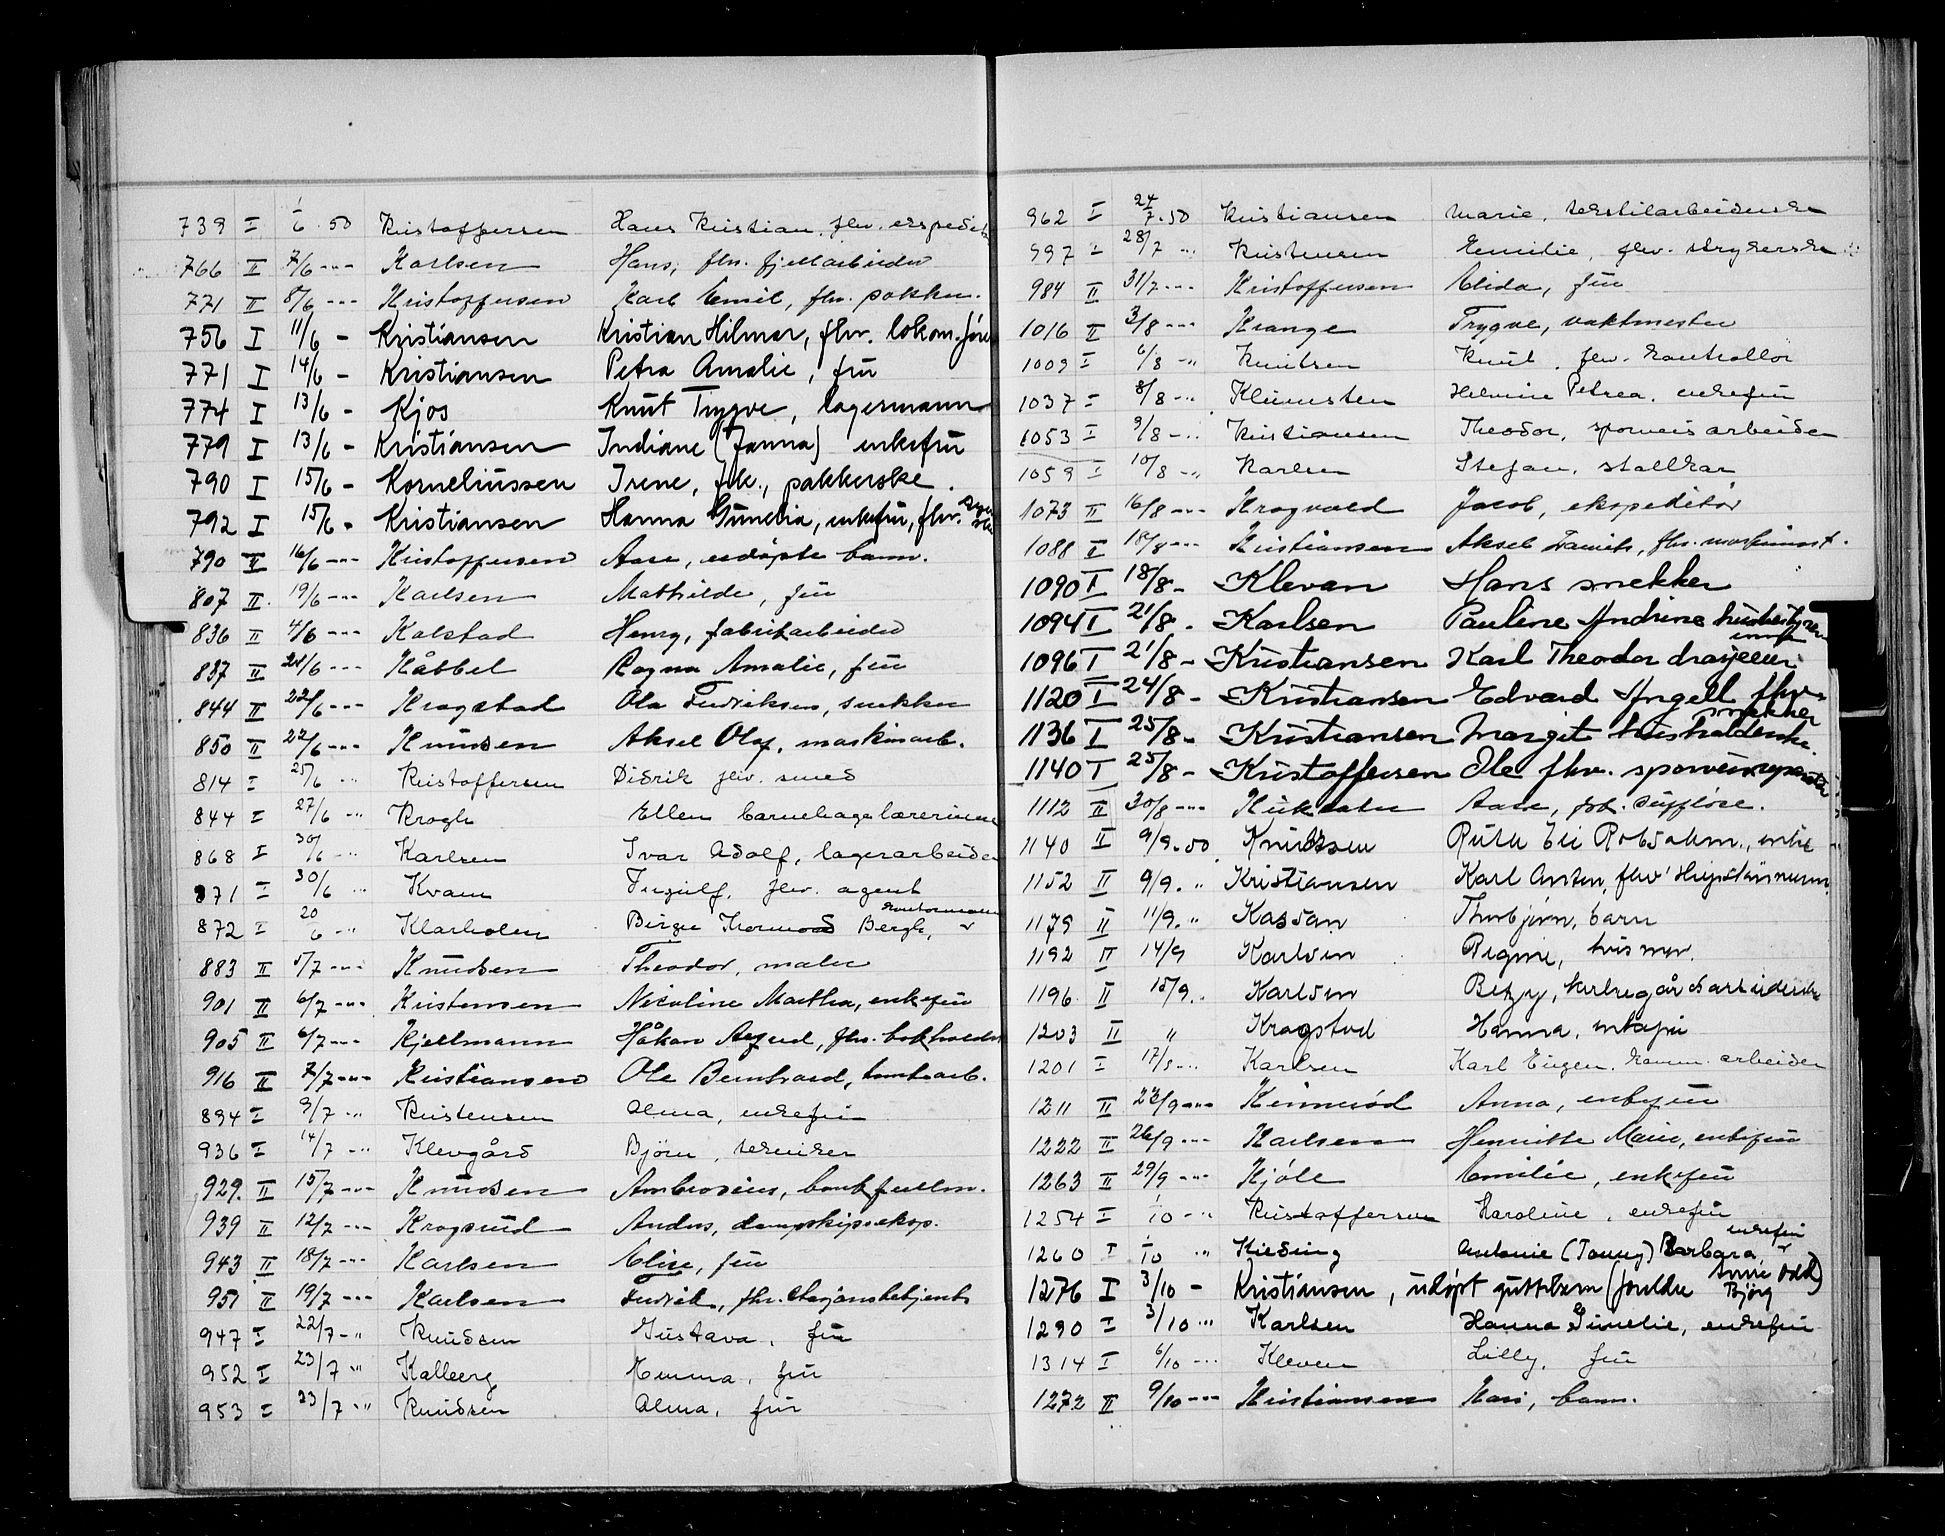 739 I 1/6 . 50 Kristoffersen Hans Kristian, fhv. ekspeditør
766 II 7/6 -"- Karlsen Hans, fhv. fjellarbeider
771 II 8/6 -"- Kristoffersen Karl Emil, fhv. pakker.
756 I 11/6 - Kristiansen Kristian Hilmar, fhv. lokom.fører
771 I 14/6 - Kristiansen Petra Amalie, fru
774 I 13/6 - Kjos Knut Trygve, lagermann
779 I 13/6 - Kristiansen Indiane (Janna) enkefru
790 I 15/6 - Korneliussen Irene, frk., pakkerske.
792 I 15/6 - Kristiansen Hanna Gunelia, enkefru, fhv.
790 II 16/6 -"- Kristoffersen Aase, udøpte barn.
807 II 19/6 -"- Karlsen Mathilde, fru
836 II 4/6 -"- Kalstad Henry, fabrikarbeider
837 II 21/6 -"- Kåbbel Ragna Amalie, fru
844 II 22/6 -"- Kragstad Ola Fredriksen, snekker
850 II 22/6 -"- Knudsen Aksel Olaf, maskinarb.
814 I 25/6 " Kristoffersen Didrik fhv. smed
844 I 27/6 -" Krogh Ellen barnehagelærerinne
868 I 30/6 -" Karlsen Ivar Adolf, lagerarbeider
871 I 30/6 " Kvam Ingulf, fhv. agent
872 I 20/6 -" Klarholm Birger Thormod Bergh, kontormann
883 II 5/7 -"- Knudsen Theodor, maler
901 II 6/7 -"- Kristensen Nicoline Martha, enkefru
905 II 6/7 -"- Kjellmann Håkon Aszed, fhv. bokholder
916 II 7/7 -"- Kristiansen Ole Bernhard, tomtearb.
894 I 9/7 -" Kristensen Alma, enkefru
936 I 14/7 -" Klevgård Björn, tekniker
929. II 15/7 -"- Knudsen Ambrosius, bankfullm.
939 II 12/7 -"- Krogsrud Anders, dampskipseksp.
943 II 18/7 -"- Karlsen Elise, fru
951 II 19/7 -"- Karlsen Fredrik, fhv. stasjonsbetjent
947 I 22/7 -" Knudsen Gustava, fru
952 I 23/7 " Kalberg Emma, fru
953 I 23/7 " Knudsen Alma, fru
962 I 24/7 . 50 Kristiansen Marie, tekstilarbeiderske
997 I 28/7 " Kristensen Emilie, fhv. strykerske
984 II 31/7 -"- Kristoffersen Elida, fru
1016 II 3/8 -"- Krange Trygve, vaktmester
1009 I 6/8 -" Knutsen Knut, fhv. kontrollör
1037 I 8/8 -" Klumsten Helmine Petrea, enkefru
1053 I 9/8 -" Kristiansen Theodor, sporveisarbeider
1059 I 10/8 -" Karlsen Stefan, stallkar
1073 II 16/8 -"- Kragvold Jacob, ekspeditör
1088 II 18/8 -"- Kristiansen Aksel Francis, fhv. maskinist.
1090 I 18/8 - Klevan Hans snekker
1094 I 21/8 - Karlsen Pauline Andrine husbestyrerinne
1096 I 21/8 - Kristiansen Karl Theodor drayeeier
1120 I 24/8 - Kristiansen Edvard Angell fhv. snekker
1136 I 25/8 - Kristiansen Margit husholderske.
1140 I 25/8 - Kristoffersen Ole fhv. sporveisreparatør
1112 II 30/8 -"- Aase, frk. sufflöse.
1140 II 9/9 . 50 Knudssen Ruth Eli Robsahm, enke
1152 II 9/9. " Kristiansen Karl Anton, fhv.
1179 II 11/9. " Kassan Thorbjørn, barn
1192 II 14/9 Karlsen Rigmor, husmor.
1196 II 15/9. . Karlsen Betzy, kirkegårdsarbeiderske
1203 II " Kragstad Hanna, enkefru
1201 I 17/9 -" Karlsen Karl Eugen, komm. arbeider
1211 II 23/9 -"- Kinnerød Anna, enkefru
1222 II 26/9 -"- Karlsen Henriette Marie, enkefru
1263 II 29/9 -"- Kjøle Emilie, enkefru
1254 I 1/10 -" Kristoffersen Karoline, enkefru
1260 I 1/10 " Kieding Antonie (Tonny) Barbara enkefru
1276 I 3/10 - Kristiansen, udöpt guttebarn (foreldre Annie Odd Bjørg)
1290 I 3/10 -" Karlsen Hanna Gunelie, enkefru
1314 I 6/10 -" Kleven Lilly, fru
1272 II 9/10 -"- Kristiansen Kari, barn.